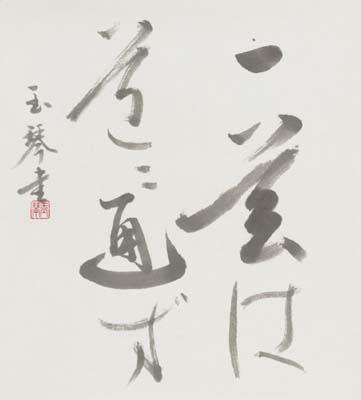 一芸は
道に通ず
玉琴書